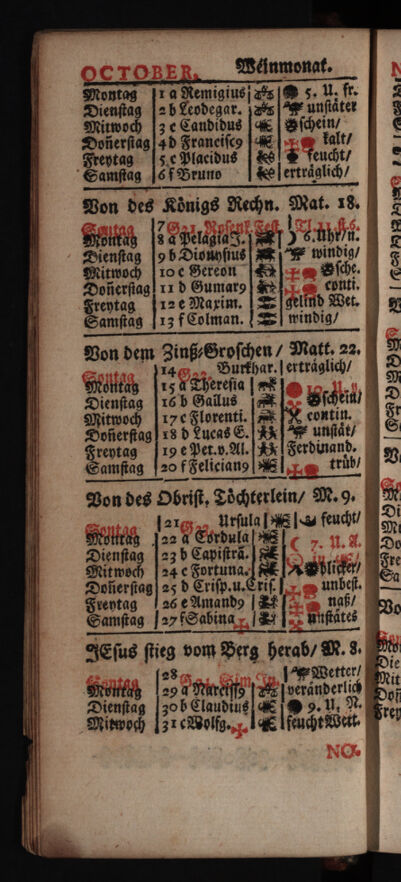 OCTOBER. Weinmonat.
Montag 1 a Remigius 5. U. fr.
Dienstag 2 b Leodegar. unstäter
Mitwoch 3 c Candidus schein/
Doñerstag 4 d Franciscꝰ kalt/
Freytag 5 e Placidus feucht/
Samstag 6 f Bruno erträglich/
Von des Königs Rechn. Mat. 18.
Sontag 7 G 21. Rosenk. Fest.
Montag 8 a Pelagia J. 6. Uhr/n.
Dienstag 9 b Dionysius windig/
Mitwoch 10 c Gereon sche.
Doñerstag 11 d Gumarꝰ conti.
Freytag 12 e Maxim. gelind Wet.
Samstag 13 f Colman. windig/
Von dem Zinß-Groschen/ Matt. 22.
Sontag 14 G 22. Burkhar. erträglich/
Montag 15 a Theresia 10. U. v.
Dienstag 16 b Gallus schein/
Mitwoch 17 c Florenti. contin.
Doñerstag 18 d Lucas E. unstät/
Freytag 19 e Pet. v. Al. Ferdinand.
Samstag 20 f Felicianꝰ trüb/
Von des Obrist. Töchterlein/ M. 9.
Sontag 21 G Ursula feucht/
Montag 22 a Cordula 7. U. A.
Dienstag 23 b Capistrã.
Mitwoch 24 c Fortuna. blicker/
Doñerstag 25 d Crisp. u. Cris. unbest.
Freytag 26 e Amandꝰ naß/
Samstag 27 f Sabina unstätes
JEsus stieg vom Berg herab/ M. 8.
Sontag 28 Wetter/
Montag 29 a Narcissꝰ veränderlich
Dienstag 30 b Claudius 9. U. N.
Mitwoch 31 c Wolfg. feucht Wett.
NO.